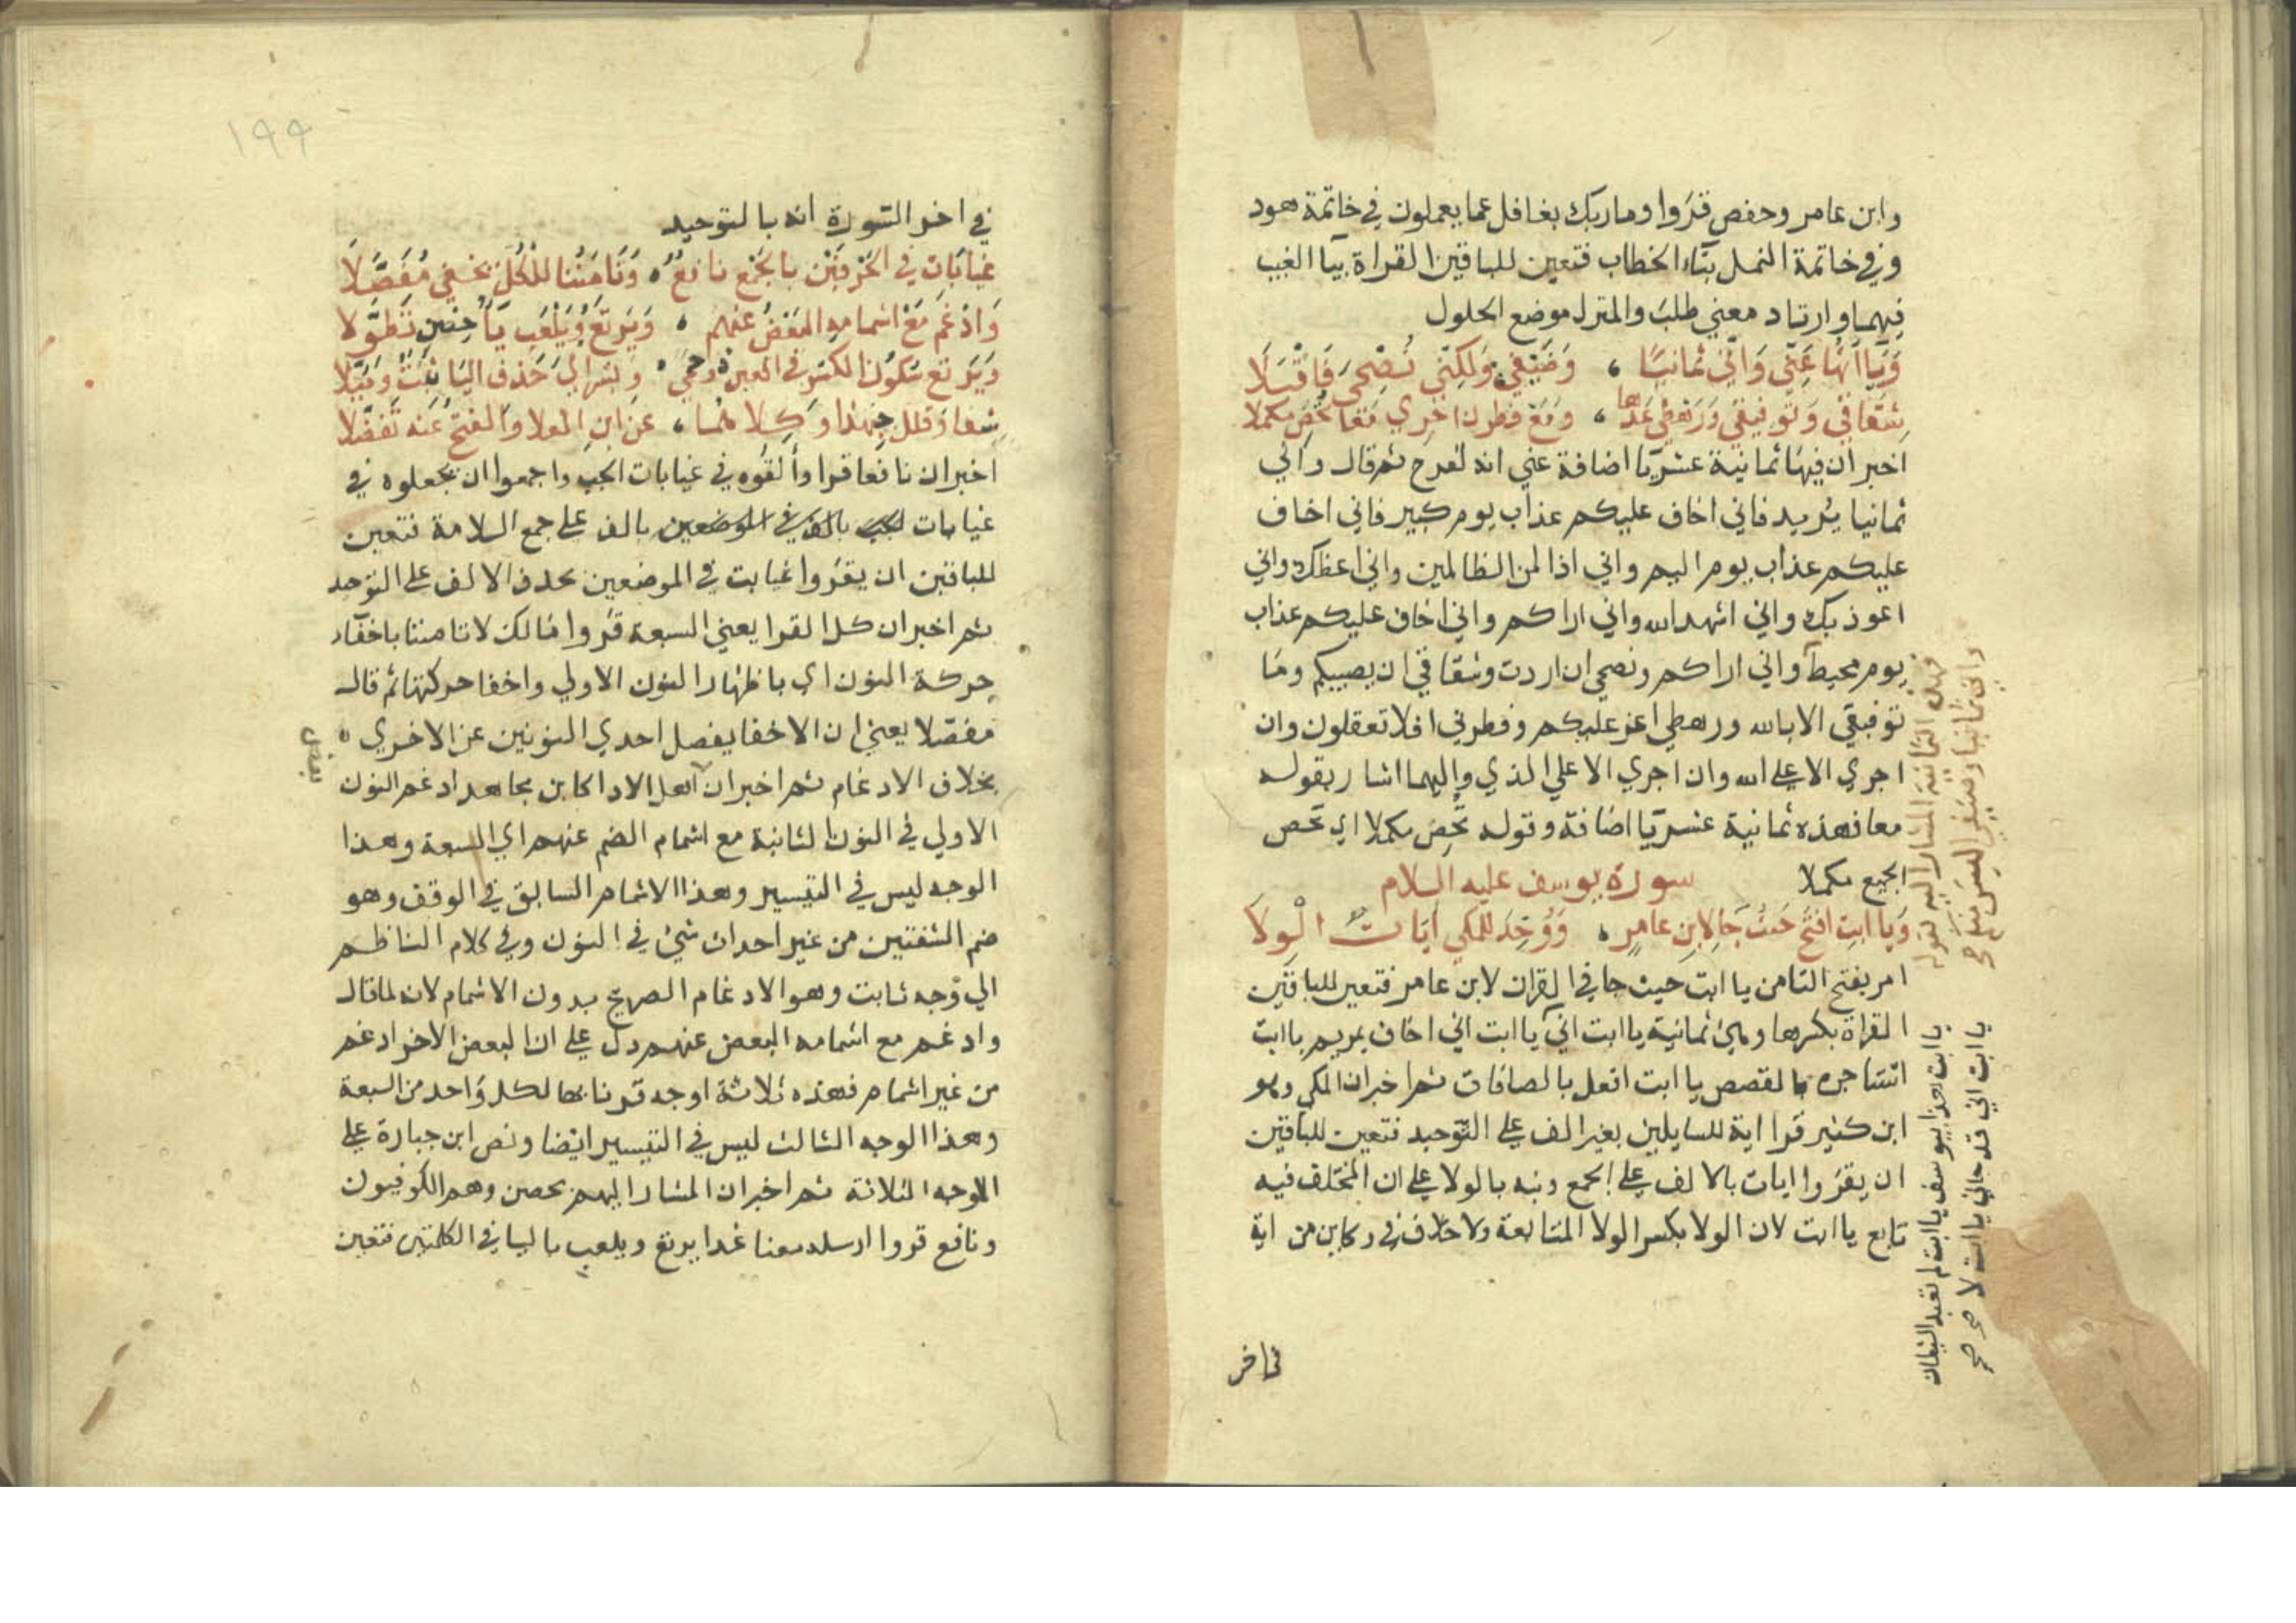 وابن عامر وحفص قرءوا وما ربك بغافل عما يعملون في خاتمة هود
وفي خاتمة النمل بتاء الخطاب فتعين للباقين القراة بيا الغيب
فيهما وارتاد معني طلب والمنزل موضع الحلول
وَيَاآتُهَا عَنِّي وَاِنِّي ثمانيًا ، وَضَيْفِي وَلكِنِّي نُصْحِيَ فَاقْبَلَا
شِقَاقِي وَتَوفيقي وَرَهْطِي عُدَّها ، وَمَعْ فطرن اجري مَعًا تُحْصِ مكملا
اخبر ان فيها ثمانية عشر يا اضافة عني انه لفرح ثم قال واني
ثمانيا يريد فاني اخاف عليكم عذاب يوم كبير فاني اخاف
عليكم عذاب يوم اليم واني اذا لمن الظالمين واني اعظك واني
اعوذ بك واني اشهد الله واني اراكم واني اخاف عليكم عذاب
يوم محيط واني اراكم ونصحي ان اردت وشقاقي ان يصيبكم وما
توفيقي الا بالله ورهطي اعز عليكم وفطرني افلا تعقلون وان
اجري الا علي الله وان اجري الا علي الذي واليهما اشار بقوله
معا فهذه ثمانية عشر يا اضافة وقوله تحص مكملا اي تحص
الجميع مكملا
سورة يوسف عليه السلام
وَيَا ابتِ افتَح حَيْثُ جَا لِابنِ عامرٍ ، وَوُحِّدَ للمكي ايَاتٌ الْوِلَا
امر بفتح التا من يا ابت حيث جا في القران لابن عامر فتعين للباقين
القراة بكسرها وهي ثمانية يا ابت اني يا ابت اني اخاف بمريم يا ابت
استاجره بالقصص يا ابت افعل بالصافات ثم اخبر ان المكي وهو
ابن كثير قرا اية للسايلين بغير الف علي التوحيد فتعين للباقين
ان يقرءوا ايات بالالف علي الجمع ونبه بالولا علي ان المختلف فيه
تابع يا ابت لان الولا بكسر الولا المتابعة ولا خلاف في وكاين من اية
فهذه الثمانية المشار اليه بقوله
واني ثمانيا
يا ابت هذا بيوسف يا ابت لم تعبد الشيطان
يا ابت اني قد جاني يا ابت لا صح
١٩٩
في اخر السورة انه بالتوحيد
غيَابَاتِ في الحَرْفَيْنِ بالجَمْعِ نافعٌ ، وَتَامَنُنا للكُلِّ يخفي مُفَصَّلَا
وَادْغِمَ مَعْ اشمامهِ البَعْضُ عنهم ، وَيَرتَعْ وَيَلْعَب يَاُ حِصْنٍ تَطَوَّلا
وَيَرتع سكونُ الكسر في العين ذو حِمي ، وبشراي حَذفُ اليَا ثَبْتٌ وَمُيِّلا
شفا وقلل جهبذا وكلاهما ، عن ابن العلا والفتحُ عَنه تفضَّلا
اخبر ان نافعا قرا والقوه في غيابات الجب واجمعوا ان يجعلوه في
غيابات بالف علي جمع السلامة فتعين
للباقين ان يقرءوا غيابت في الموضعين بحذف الالف علي التوحيد
ثم اخبر ان كل القرا يعني السبعة قرءوا مالك لا تامننا باخفاء
حركة النون اي باظهار النون الاولي واخفا حركتها ثم قال
مفصلا يعني ان الاخفا يفصل احدي النونين عن الاخري
بعض
بخلاف الادغام ثم اخبر ان اهل الادا كابن مجاهد ادغم النون
الاولي في النون الثانية مع اشمام الضم عنهم اي السبعة وهذا
الوجه ليس في التيسير وهذا الاشمام السابق في الوقف وهو
ضم الشفتين من غير احداث شئ في النون وفي كلام الناظم
الي وجه ثابت وهو الادغام الصريح بدون الاشمام لانه لما قال
وادغم مع اشمامه البعض عنهم دل علي ان البعض الاخر ادغم
من غير اشمام فهذه ثلاثة اوجه قرنا بها لكل واحد من السبعة
وهذا الوجه الثالث ليس في التيسير ايضا ونص ابن جبارة علي
الاوجه الثلاثة ثم اخبر ان المشار اليهم بحصن وهم الكوفيون
ونافع قروا ارسله معنا غدا يرتع ويلعب باليا في الكلمتين فتعين